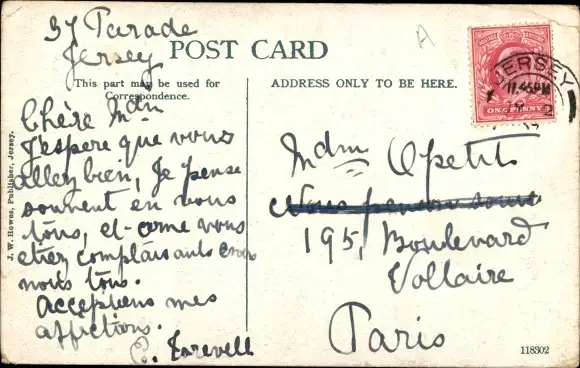 37 Parade
Jersey
POST CARD
This part may be used for
Correspondence.
ADDRESS ONLY TO BE HERE.
Chère Mdm
J'espere que vous
allez bien, Je pense
souvent en vous
tous, et come vous
etiez complaisants
nous tous.
acceptiens mes
affictions.
C. Farevell
Mdm Opetit
Nous pensons
195, Boulevard
Vollaire
Paris
JERSEY
11.45PM
ONE PENNY
J. W. Howes, Publisher, Jersey.
118302